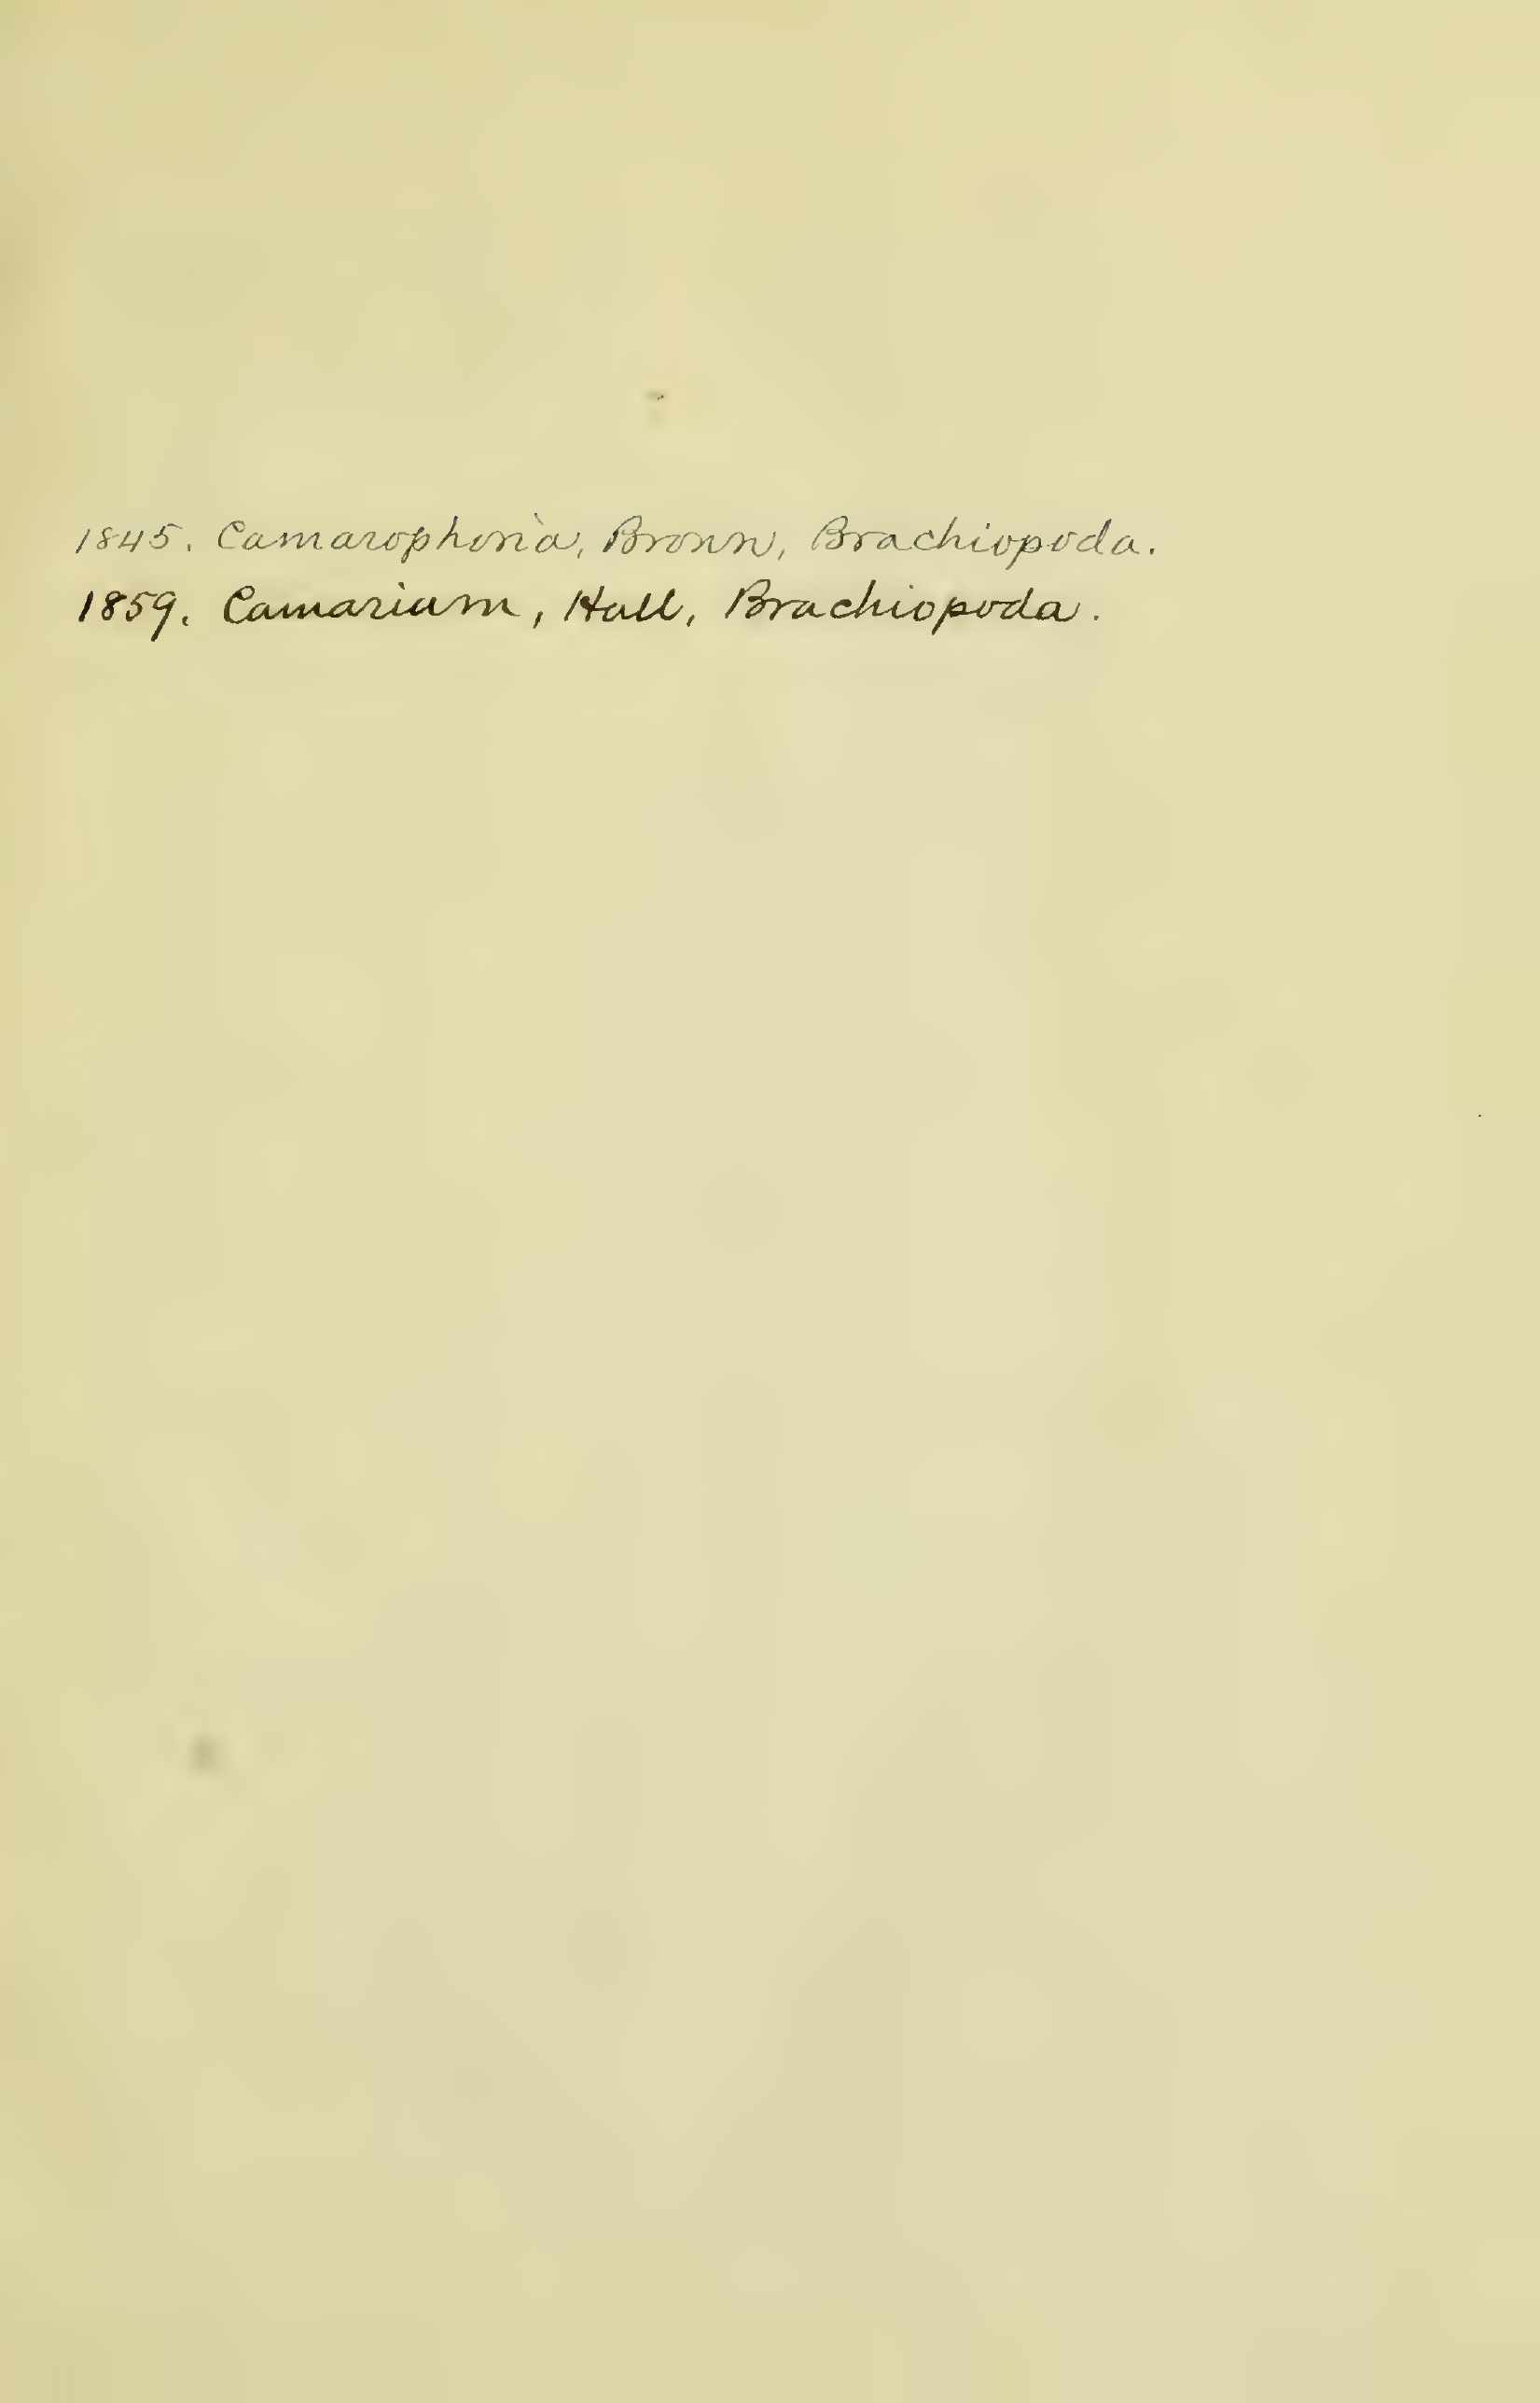 1845. Camarophoria, Bronn, Brachiopoda.
1859. Camarium, Hall, Brachiopoda.